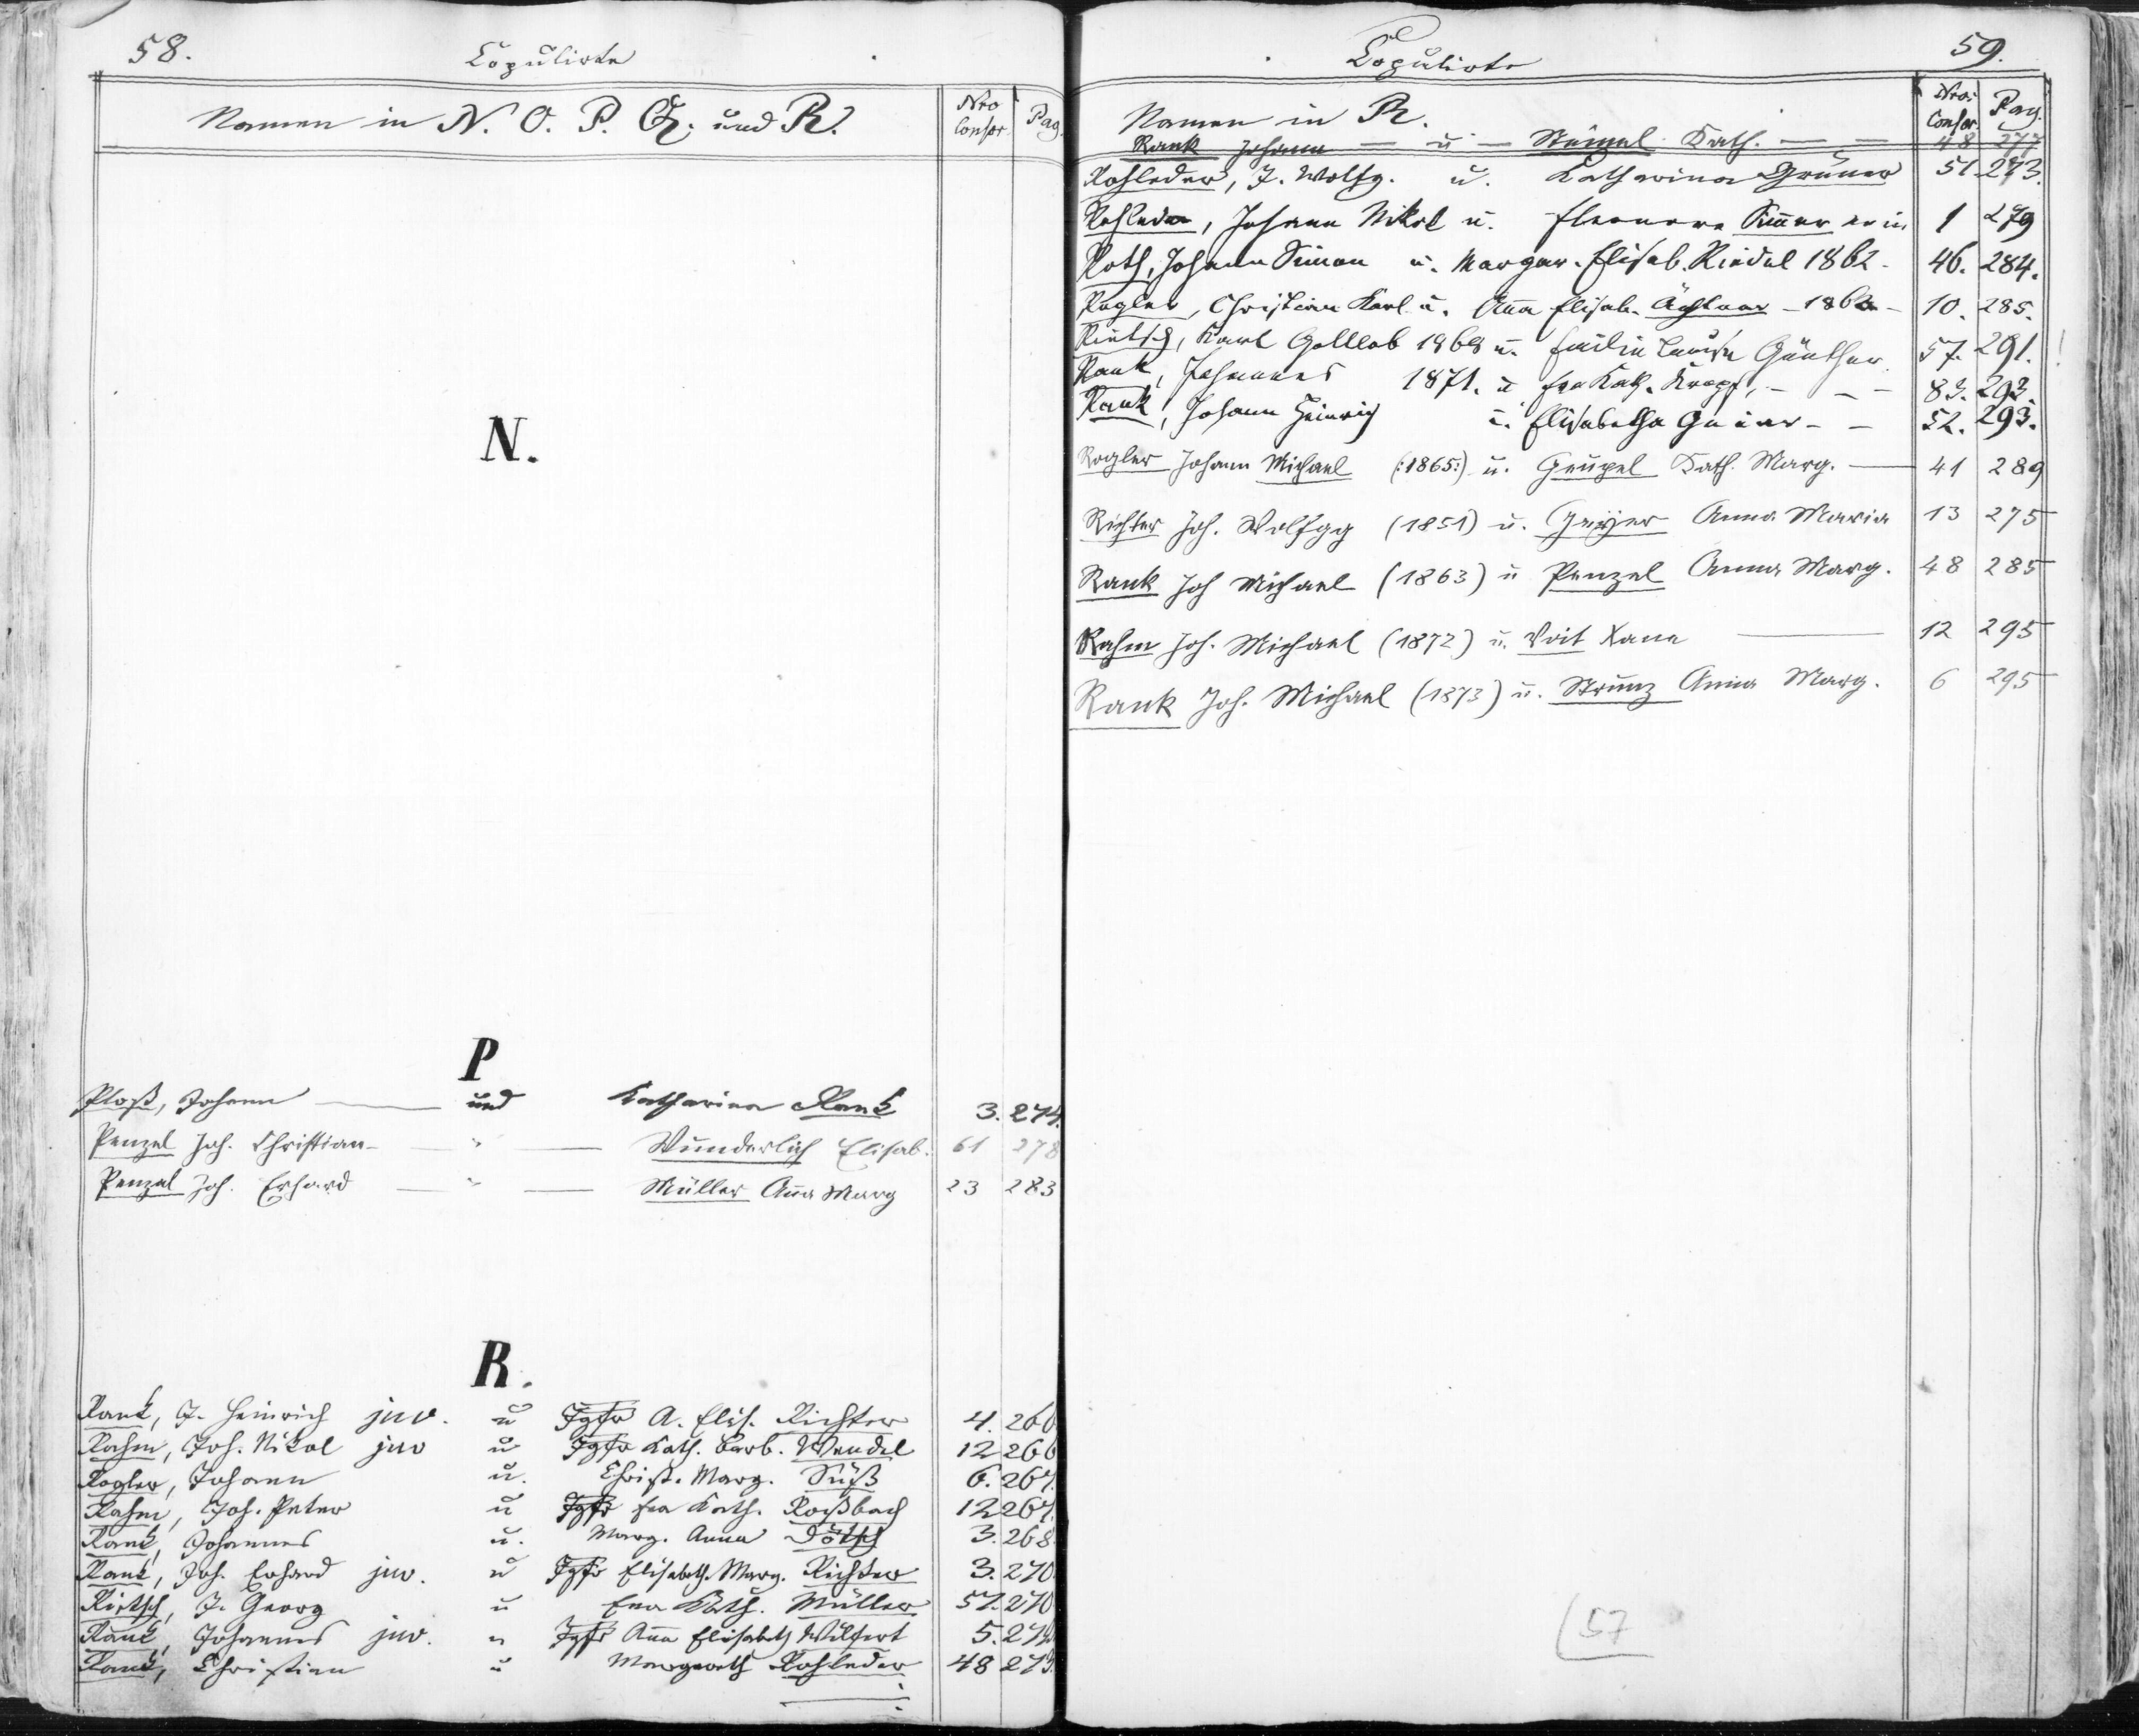 58.
Copulirte
Namen in N. O. P. Q. und R.
Nro Conscr.
Pag.
N.
P
Ploß, Johann — und Katharina Rank 3. 274.
Penzel Joh. Christian — " — Wunderlich Elisab. 61 278
Penzel Joh. Erhard — " — Müller Anna Marg 23 283
R.
Rank, J. Heinrich juv. u Jgfr A. Elis. Richter 4. 266
Rahm, Joh. Nikol juv u Jgfr Kath. Barb. Wendel 12 266
Rogler, Johann u. Christ. Marg. Süß 6. 267.
Rahm, Joh. Peter u Jgfr Eva Kath. Roßbach 12 267.
Rank, Johannes u. Marg. Anna Dötsch 3. 268.
Rank, Joh. Erhard juv. u Jgfr Elisabeth. Marg. Richter 3. 270.
Rietsch, J. Georg u Eva Kath. Müller 57. 270
Rank, Johannes juv. u Jgfr Anna Elisabeth Wilfert 5. 272
Rank, Christian u Margareth Rohleder 48 273.
59.
Copulirte
Namen in R.
Nro: Conscr.
Pag.
Rank Johann — u — Stümel Kath. — — 48 277
Rohleder, J. Wolfg. u. Katharina Grüner 51. 273.
Rohleder, Johann Nikol u. Eleonora 1 279
Roth, Johann Simon u. Margar. Elisab. Riedel 1862. 46. 284.
Rogler, Christian Karl u. Anna Elisab. 10. 285.
Rietsch, Karl Gottlob 1869 u. Emilie Louise Günther. 57. 291.
Rank, Johannes 1871. u Eva Kath. Kropf, — — 83. 293.
Rank, Johann Heinrich u. Elisabetha — — 52. 293.
Rogler Johann Michael (:1865:) u. Geupel Kath. Marg. — 41 289
Richter Joh. Wolfgg (1851) u. Geyer Anna Maria 13 275
Rank Joh Michael (1863) u Penzel Anna Marg. 48 285
Rahm Joh. Michael (1872) u. Voit — 12 295
Rank Joh. Michael (1873) u. Strunz Anna Marg. 6 295
57